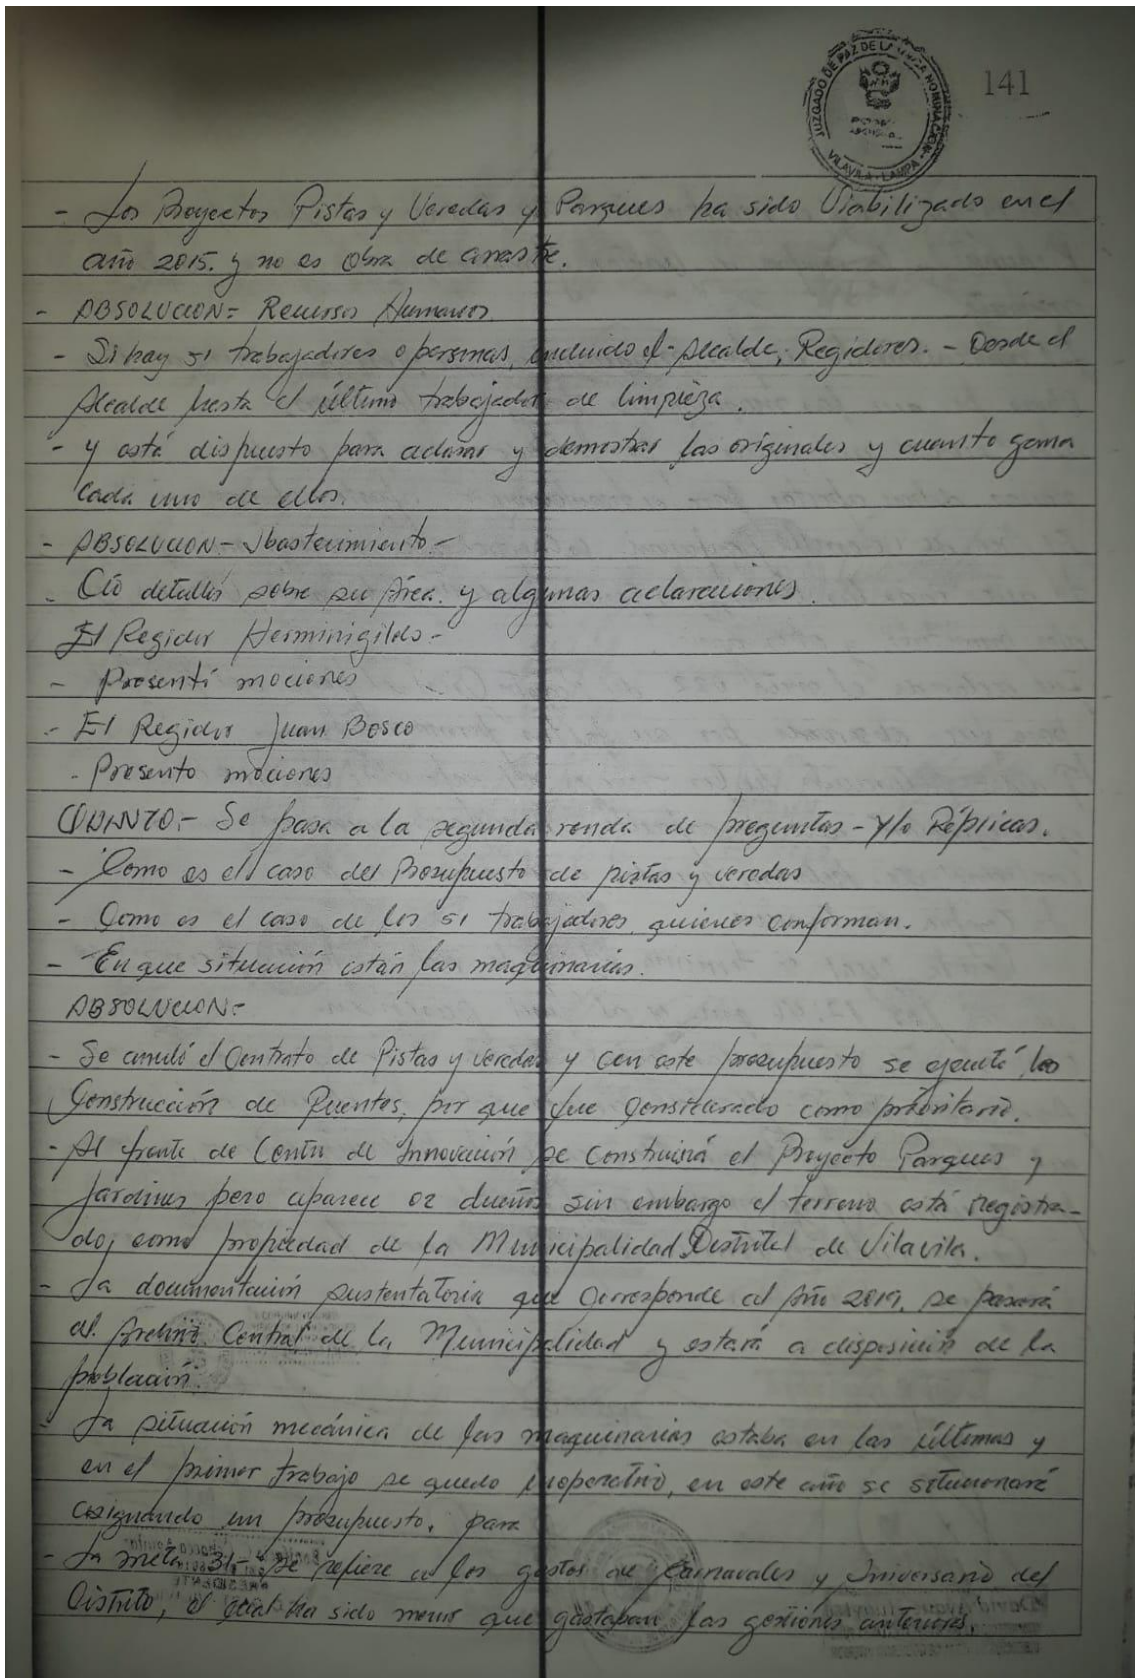 JUZGADO DE PAZ DE LA UNICA NOMINACION
VILAVILA - LAMPA
141
- Los Proyectos Pistas y Veredas y Parques ha sido Viabilizado en el
año 2015. y no es obra de arrastre.
- ABSOLUCION= Recursos Humanos
- Si hay 51 trabajadores o personas, incluido el Alcalde, Regidores. - Desde el
Alcalde hasta el último trabajador de limpieza.
- y está dispuesto para aclarar y demostrar los originales y cuanto gana
cada uno de ellos.
- ABSOLUCION - Abastecimiento -
- Dió detalles sobre su Área. y algunas aclaraciones.
El Regidor Herminigildo -
- Presentó mociones
- El Regidor Juan Bosco
- Presento mociones
- Se pasa a la segunda ronda de preguntas - Y/o Réplicas.
- Como es el caso del Presupuesto de pistas y veredas
- Como es el caso de los 51 trabajadores, quienes conforman.
- En que situación están las maquinarias.
ABSOLUCION=
- Se anuló el Contrato de Pistas y veredas y con este presupuesto se ejecutó los
Construcción de Puentes, por que fue Considerado como prioritario.
- Al frente de Centro de Innovación se Construirá el Proyecto Parques y
Jardines pero aparece 02 dueños sin embargo el terreno está registra-
do, como propiedad de la Municipalidad Distrital de Vilavila.
- La documentación sustentatoria que Corresponde al Año 2019, se pasará
al Archivo Central de la Municipalidad y estará a disposición de la
población.
- La situación mecánica de las maquinarias estaba en las últimas y
en el primer trabajo se quedo inoperativo, en este año se situcionará
asignando un presupuesto, para
- La meta 31- se refiere a los gastos de Carnavales y Aniversario del
Distrito, el cual ha sido menor que gastaban las gestiones anteriores.